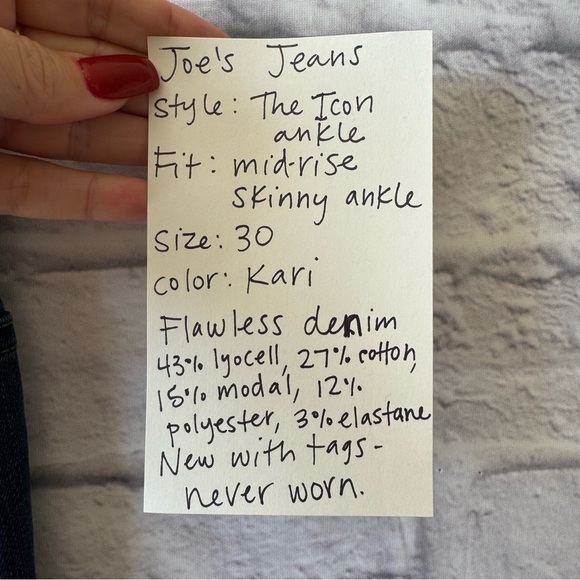 Joe's Jeans
Style: The Icon
ankle
Fit: mid-rise
skinny ankle
Size: 30
color: Kari
Flawless denim
43% lyocell, 27% cotton,
15% modal, 12%
polyester, 3% elastane
New with tags-
never worn.